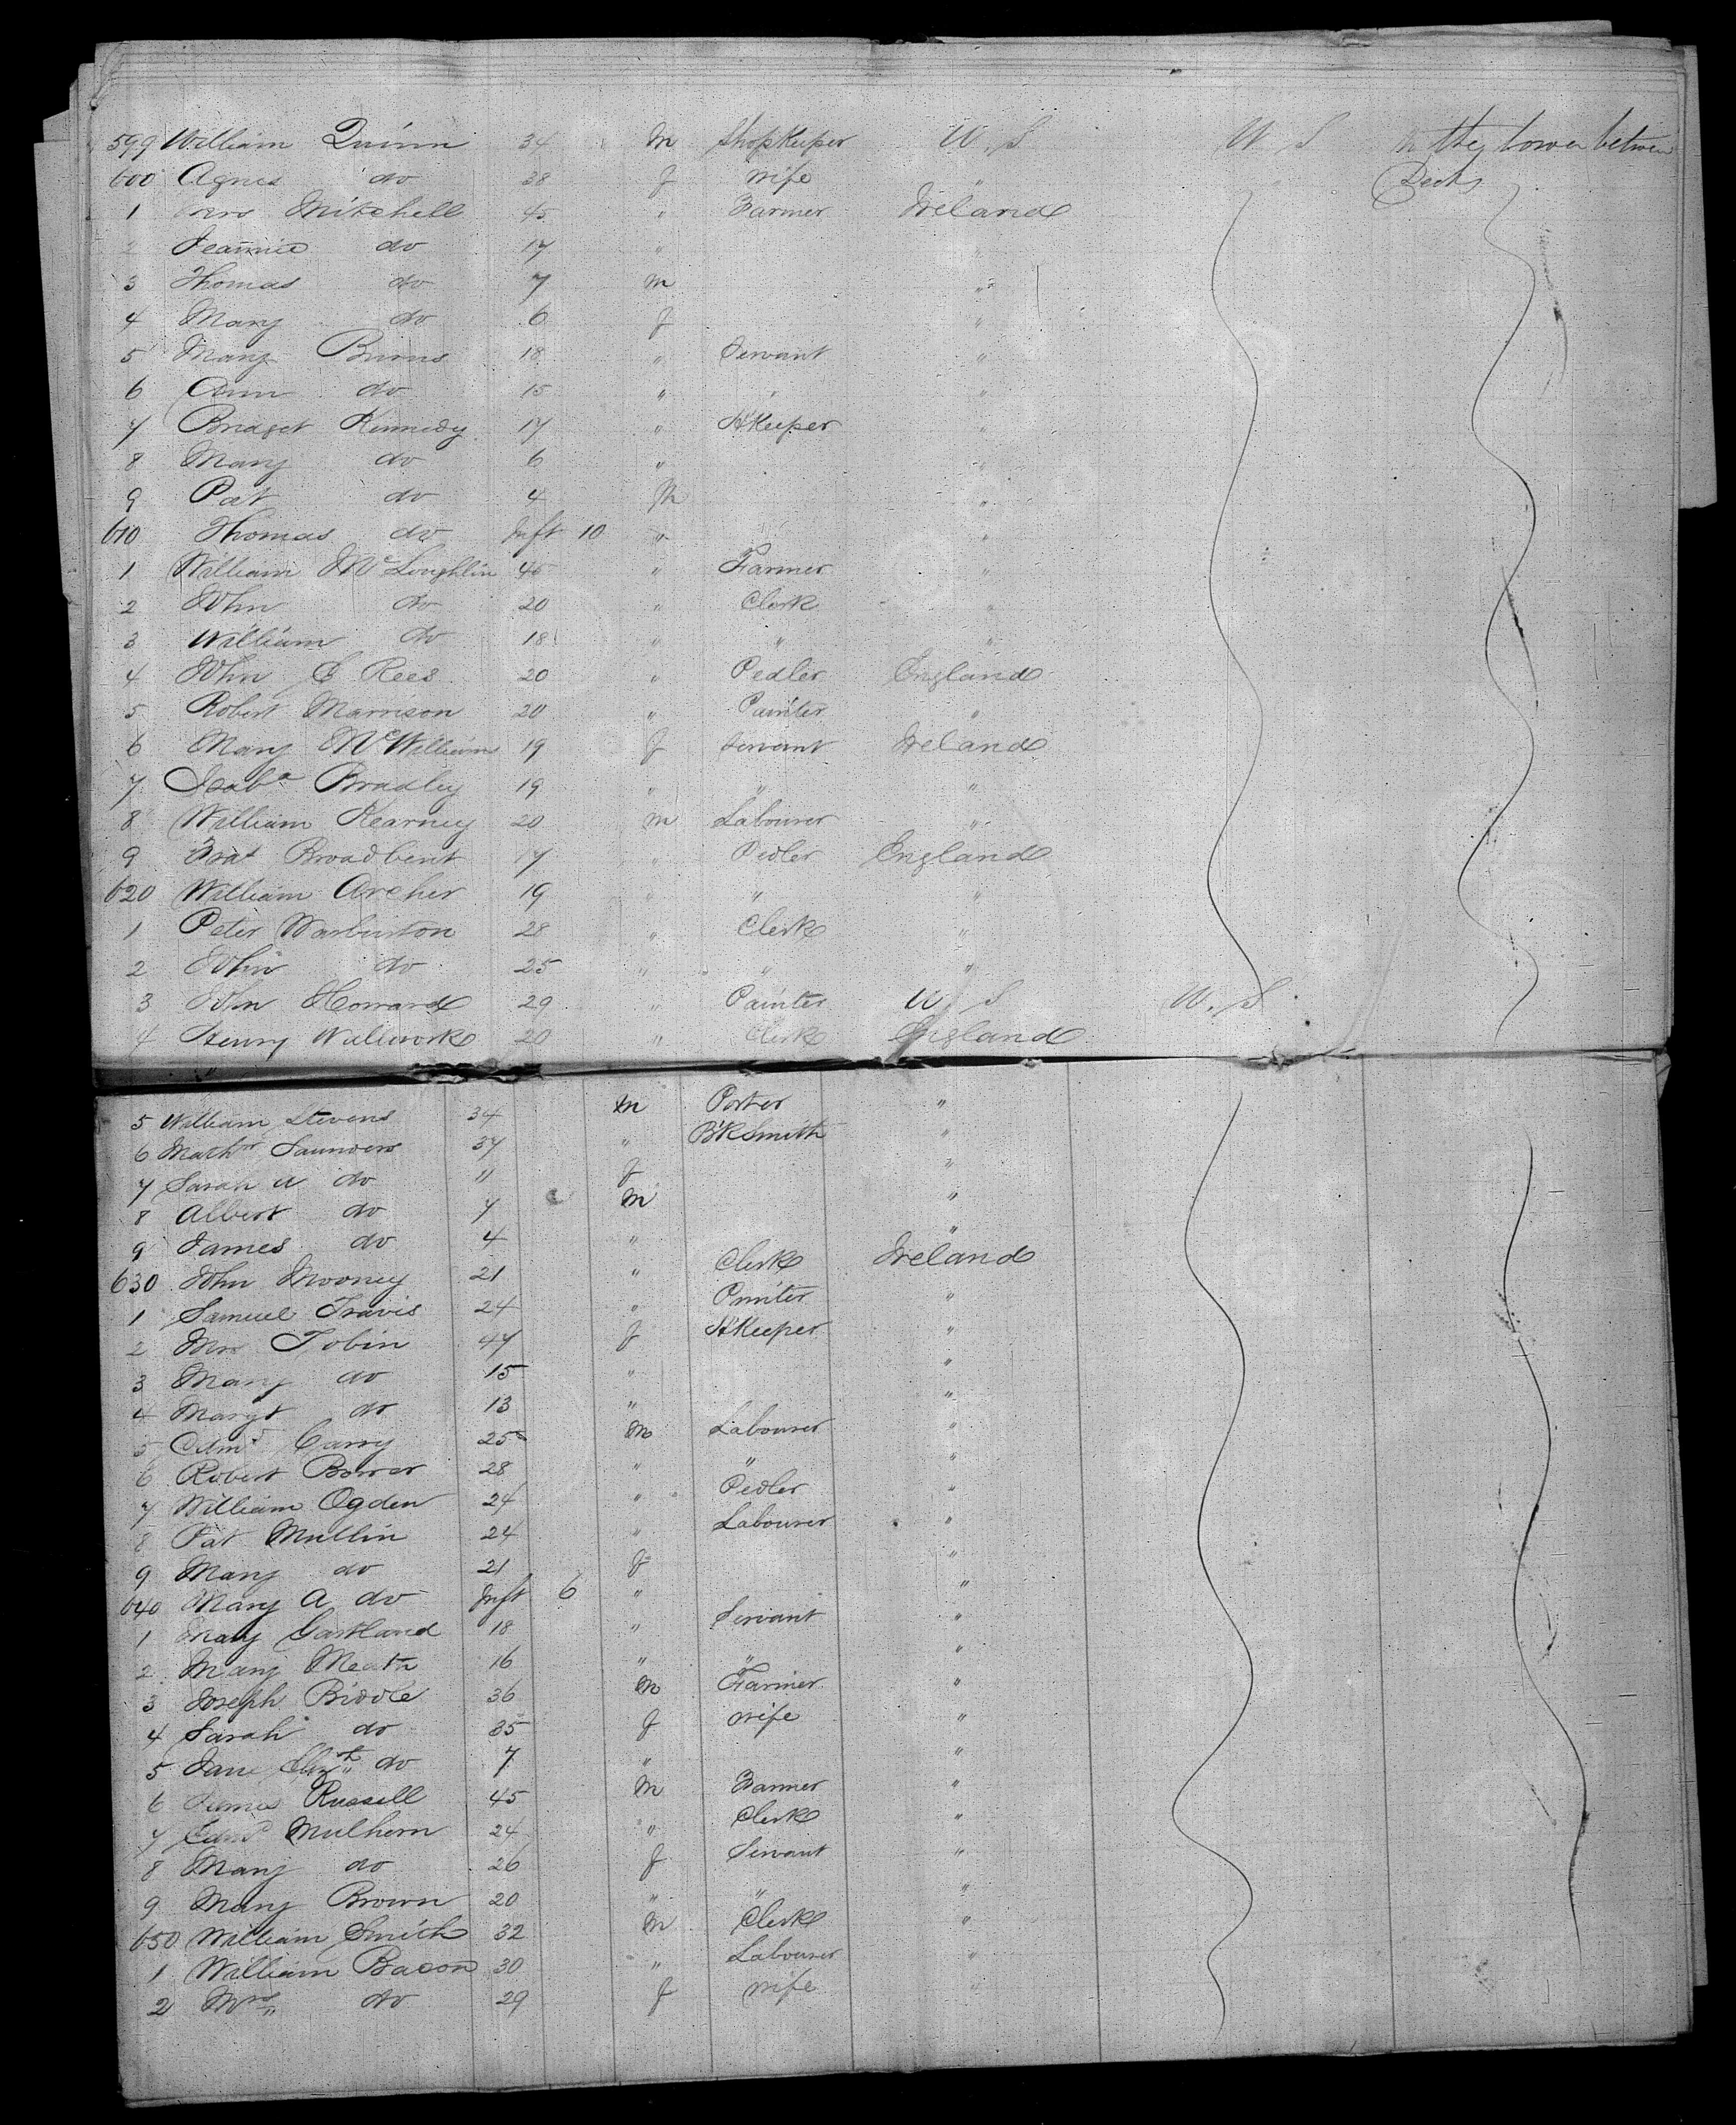 599 William Quinn 34 m Shopkeeper U. S U S In the lower between
600 Agnes do 38 f wife " Decks
1 Mrs Mitchell 45 " Farmer Ireland
2 Jeannie do 17 " "
3 Thomas do 7 m "
4 Mary do 6 f "
5 Mary Burns 18 " Servant "
6 Ann do 15 " " "
7 Bridget Kennedy 17 " H'Keeper "
8 Mary do 6 " "
9 Pat do 4 m "
610 Thomas do Inft 10 " "
1 William McLoughlin 45 " Farmer "
2 John do 20 " Clerk "
3 William do 18 " " "
4 John C Rees 20 " Pedler England
5 Robert Marrison 20 " Painter "
6 Mary McWilliams 19 f servant Ireland
7 Isaba Bradley 19 " " "
8 William Kearney 20 m Labourer "
9 Broadbent 17 " Pedler England
620 William Archer 19 " " "
1 Peter Warburton 28 " Clerk "
2 John do 25 " " "
3 John Howard 29 " Painter U S U. S
4 Henry 20 " Clerk England
5 William Stevens 34 m Porter "
6 Saunders 37 " B'KSmith "
7 Sarah A do " f "
8 Albert do 7 m "
9 James do 4 " "
630 John Mooney 21 " Clerk Ireland
1 Samuel Travis 24 " Printer "
2 Mrs Tobin 47 f H'Keeper "
3 Mary do 15 " "
4 Margt do 13 " "
5 Edmd Carry 25 m Labourer "
6 Robert Bower 28 " " "
7 William Ogden 24 " Pedler "
8 Pat Mullin 24 " Labourer "
9 Mary do 21 f "
640 Mary A do Inft 6 " "
1 Mary Gartland 18 " Servant "
2 Mary Meath 16 " " "
3 Joseph Biddle 36 m Farmer "
4 Sarah do 35 f wife "
5 Jane Elizth do 7 " "
6 James Russell 45 m Farmer "
7 Edmd Mulhern 24 " Clerk "
8 Mary do 26 f Servant "
9 Mary Brown 20 " " "
650 William Smith 32 m Clerk "
1 William Bacon 30 " Labourer "
2 Mrs do 29 f wife "